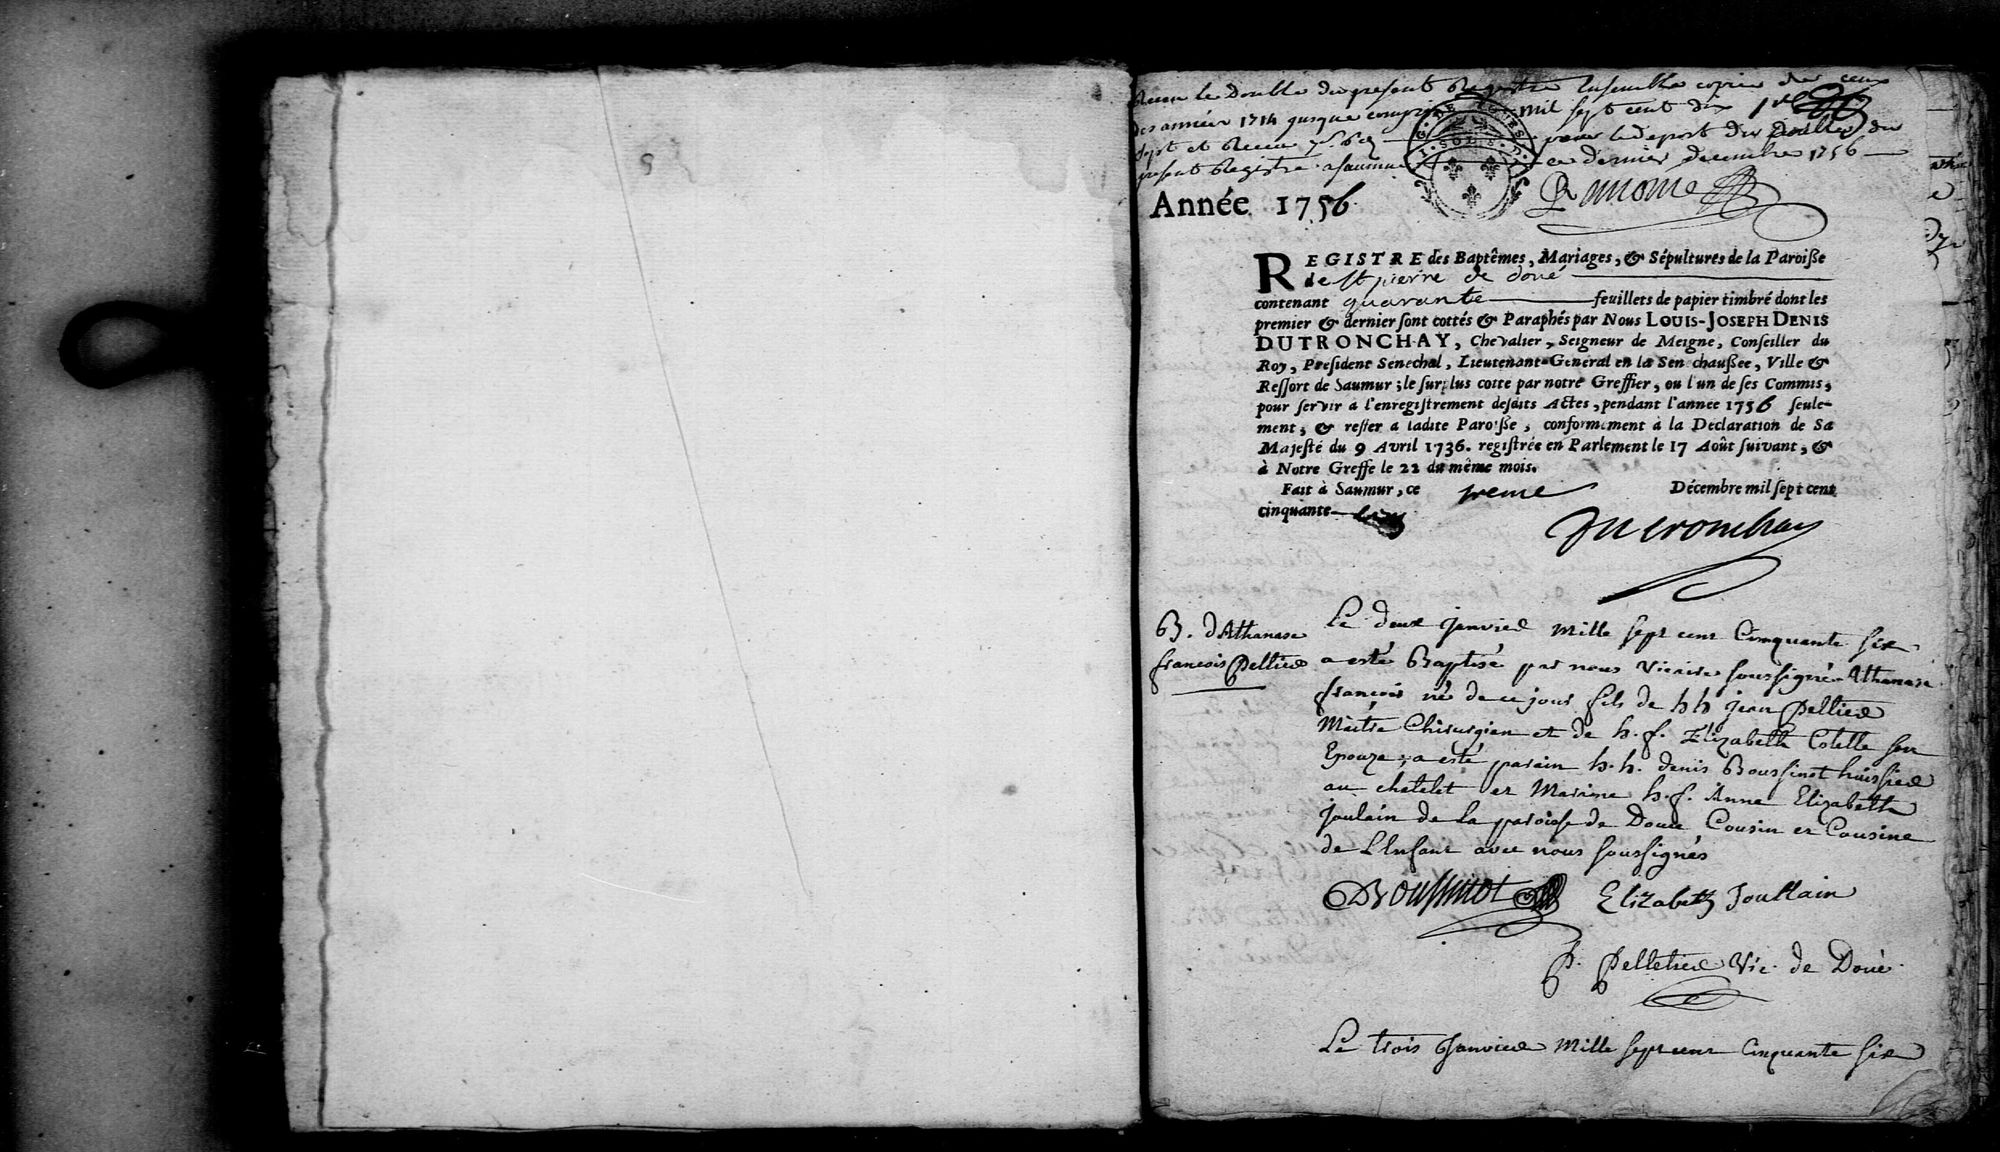 Receu le Double du present Registre Ensemble copie de ceux
des années 1714 jusque compris mil sept cent dix
sept et Receu pour le deport du Double du
present Registre a Saumur ce dernier decembre 1756
Année 1756
REGISTRE des Baptêmes, Mariages, & Sépultures de la Paroisse
de St pierre de doué
contenant quarante feuillets de papier timbré dont les
premier & dernier sont cottés & Paraphés par Nous LOUIS-JOSEPH DENIS
DUTRONCHAY, Chevalier, Seigneur de Meigne, Conseiller du
Roy, President Senechal, Lieutenant-General en la Sen chaussee, Ville &
Ressort de Saumur; le surplus cotte par notre Greffier, ou l'un de ses Commis,
pour servir a l'enregistrement desdits Actes, pendant l'année 1756 seule-
ment, & rester a ladite Paroisse, conformement à la Declaration de Sa
Majesté du 9 Avril 1736. registrée en Parlement le 17 Août suivant, &
à Notre Greffe le 22 du même mois.
Fait à Saumur, ce Décembre mil sept cent
cinquante
Dutronchay
B. d'Athanase
francois Pellier
Le deux janvier mille sept cent Cinquante six
a esté Baptisé par nous Vicaire soussigné Athanase
francois né de ce jour fils de h h jean Pellier
Maitre Chirurgien et de h. f. Elizabeth Colelle son
Epouze; a esté parain h. h. denis Boussinot huissier
au chatelet et Maraine h. f. Anne Elizabeth
joulain de la paroisse de Doue Cousin et Cousine
de L'Enfant avec nous soussignés
D Boussinot Elizabeth Joullain
P. Pelletier Vic. de Doué.
Le trois Janvier Mille sept cent Cinquante six